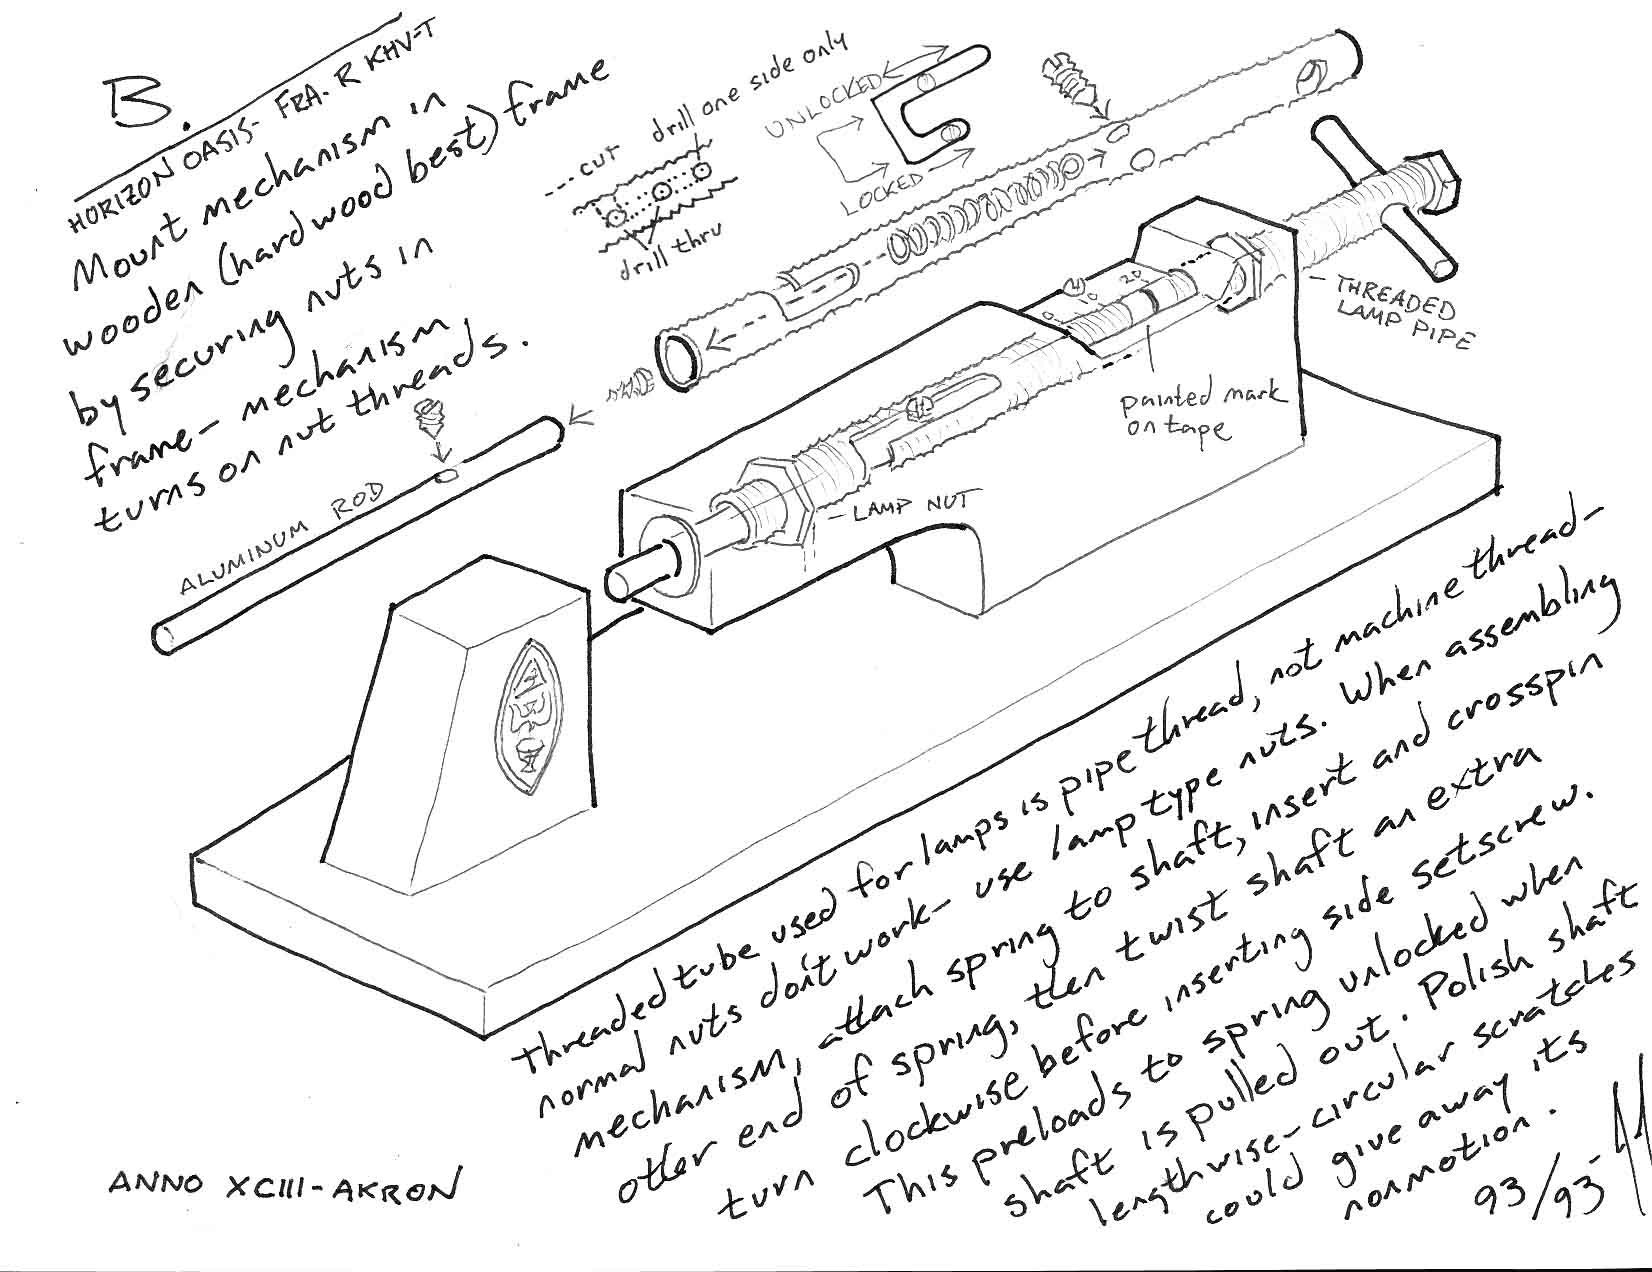 B.
HORIZON OASIS- FRA. R KHV-T
Mount mechanism in
wooden (hardwood best) frame
by securing nuts in
frame- mechanism
turns on nut threads.
--- cut
drill one side only
drill thru
UNLOCKED
LOCKED
ALUMINUM ROD
THREADED
LAMP PIPE
0
20
painted mark
on tape
LAMP NUT
Threaded tube used for lamps is pipe thread, not machine thread-
normal nuts don't work- use lamp type nuts. When assembling
mechanism, attach spring to shaft, insert and crosspin
other end of spring, then twist shaft an extra
turn clockwise before inserting side setscrew.
This preloads to spring unlocked when
shaft is pulled out. Polish shaft
lengthwise- circular scratches
could give away its
nonmotion.
93/93-
ANNO XCIII-AKRON